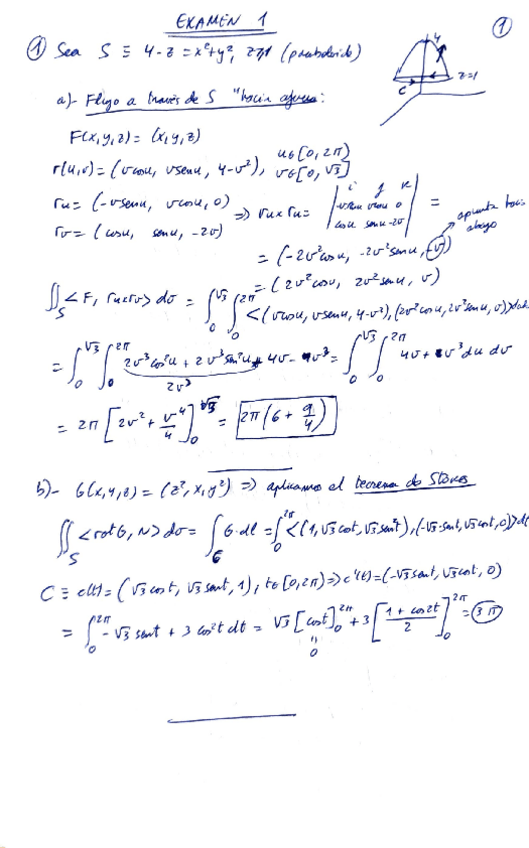 EXAMEN 1
①
① Sea S ≡ 4-z = x²+y², z≥1 (paraboloide)
4
z=1
C
a)- Flujo a través de S "hacia afuera":
F(x,y,z) = (x,y,z)
r(u,v) = (v cosu, v senu, 4-v²), u∈[0,2π] v∈[0,√3]
ru = (-v senu, v cosu, 0)
rv = (cosu, senu, -2v)
=> ru x rv = | i j k
-v senu v cosu 0
cosu senu -2v | =
apunta hacia abajo
= (-2v² cosu, -2v² senu, -v)
= (2v² cosu, 2v² senu, v)
∬_S <F, ru x rv> dσ = ∫_0^√3 ∫_0^2π <(v cosu, v senu, 4-v²), (2v² cosu, 2v² senu, v)> du dv
= ∫_0^√3 ∫_0^2π 2v³ cos²u + 2v³ sen²u + 4v - v³ = ∫_0^√3 ∫_0^2π 4v + v³ du dv
2v³
= 2π [2v² + v⁴/4]_0^√3 = 2π (6 + 9/4)
b)- G(x,y,z) = (z², x, y²) => aplicamos el teorema de Stokes
∬_S <rot G, N> dσ = ∫_C G·dl = ∫_0^2π <(1, √3 cost, √3 sen²t), (-√3 sent, √3 cost, 0)> dt
C ≡ c(t) = (√3 cost, √3 sent, 1), t∈[0,2π] => c'(t) = (-√3 sent, √3 cost, 0)
= ∫_0^2π -√3 sent + 3 cos²t dt = √3 [cost]_0^2π + 3 [1 + cos2t / 2]_0^2π = 3π
"
0